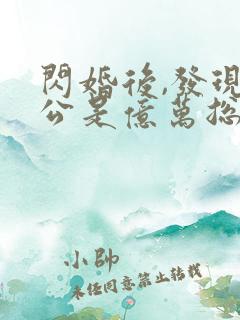 閃婚後,發現
公是億萬總
小帥
未經同意禁止轉載